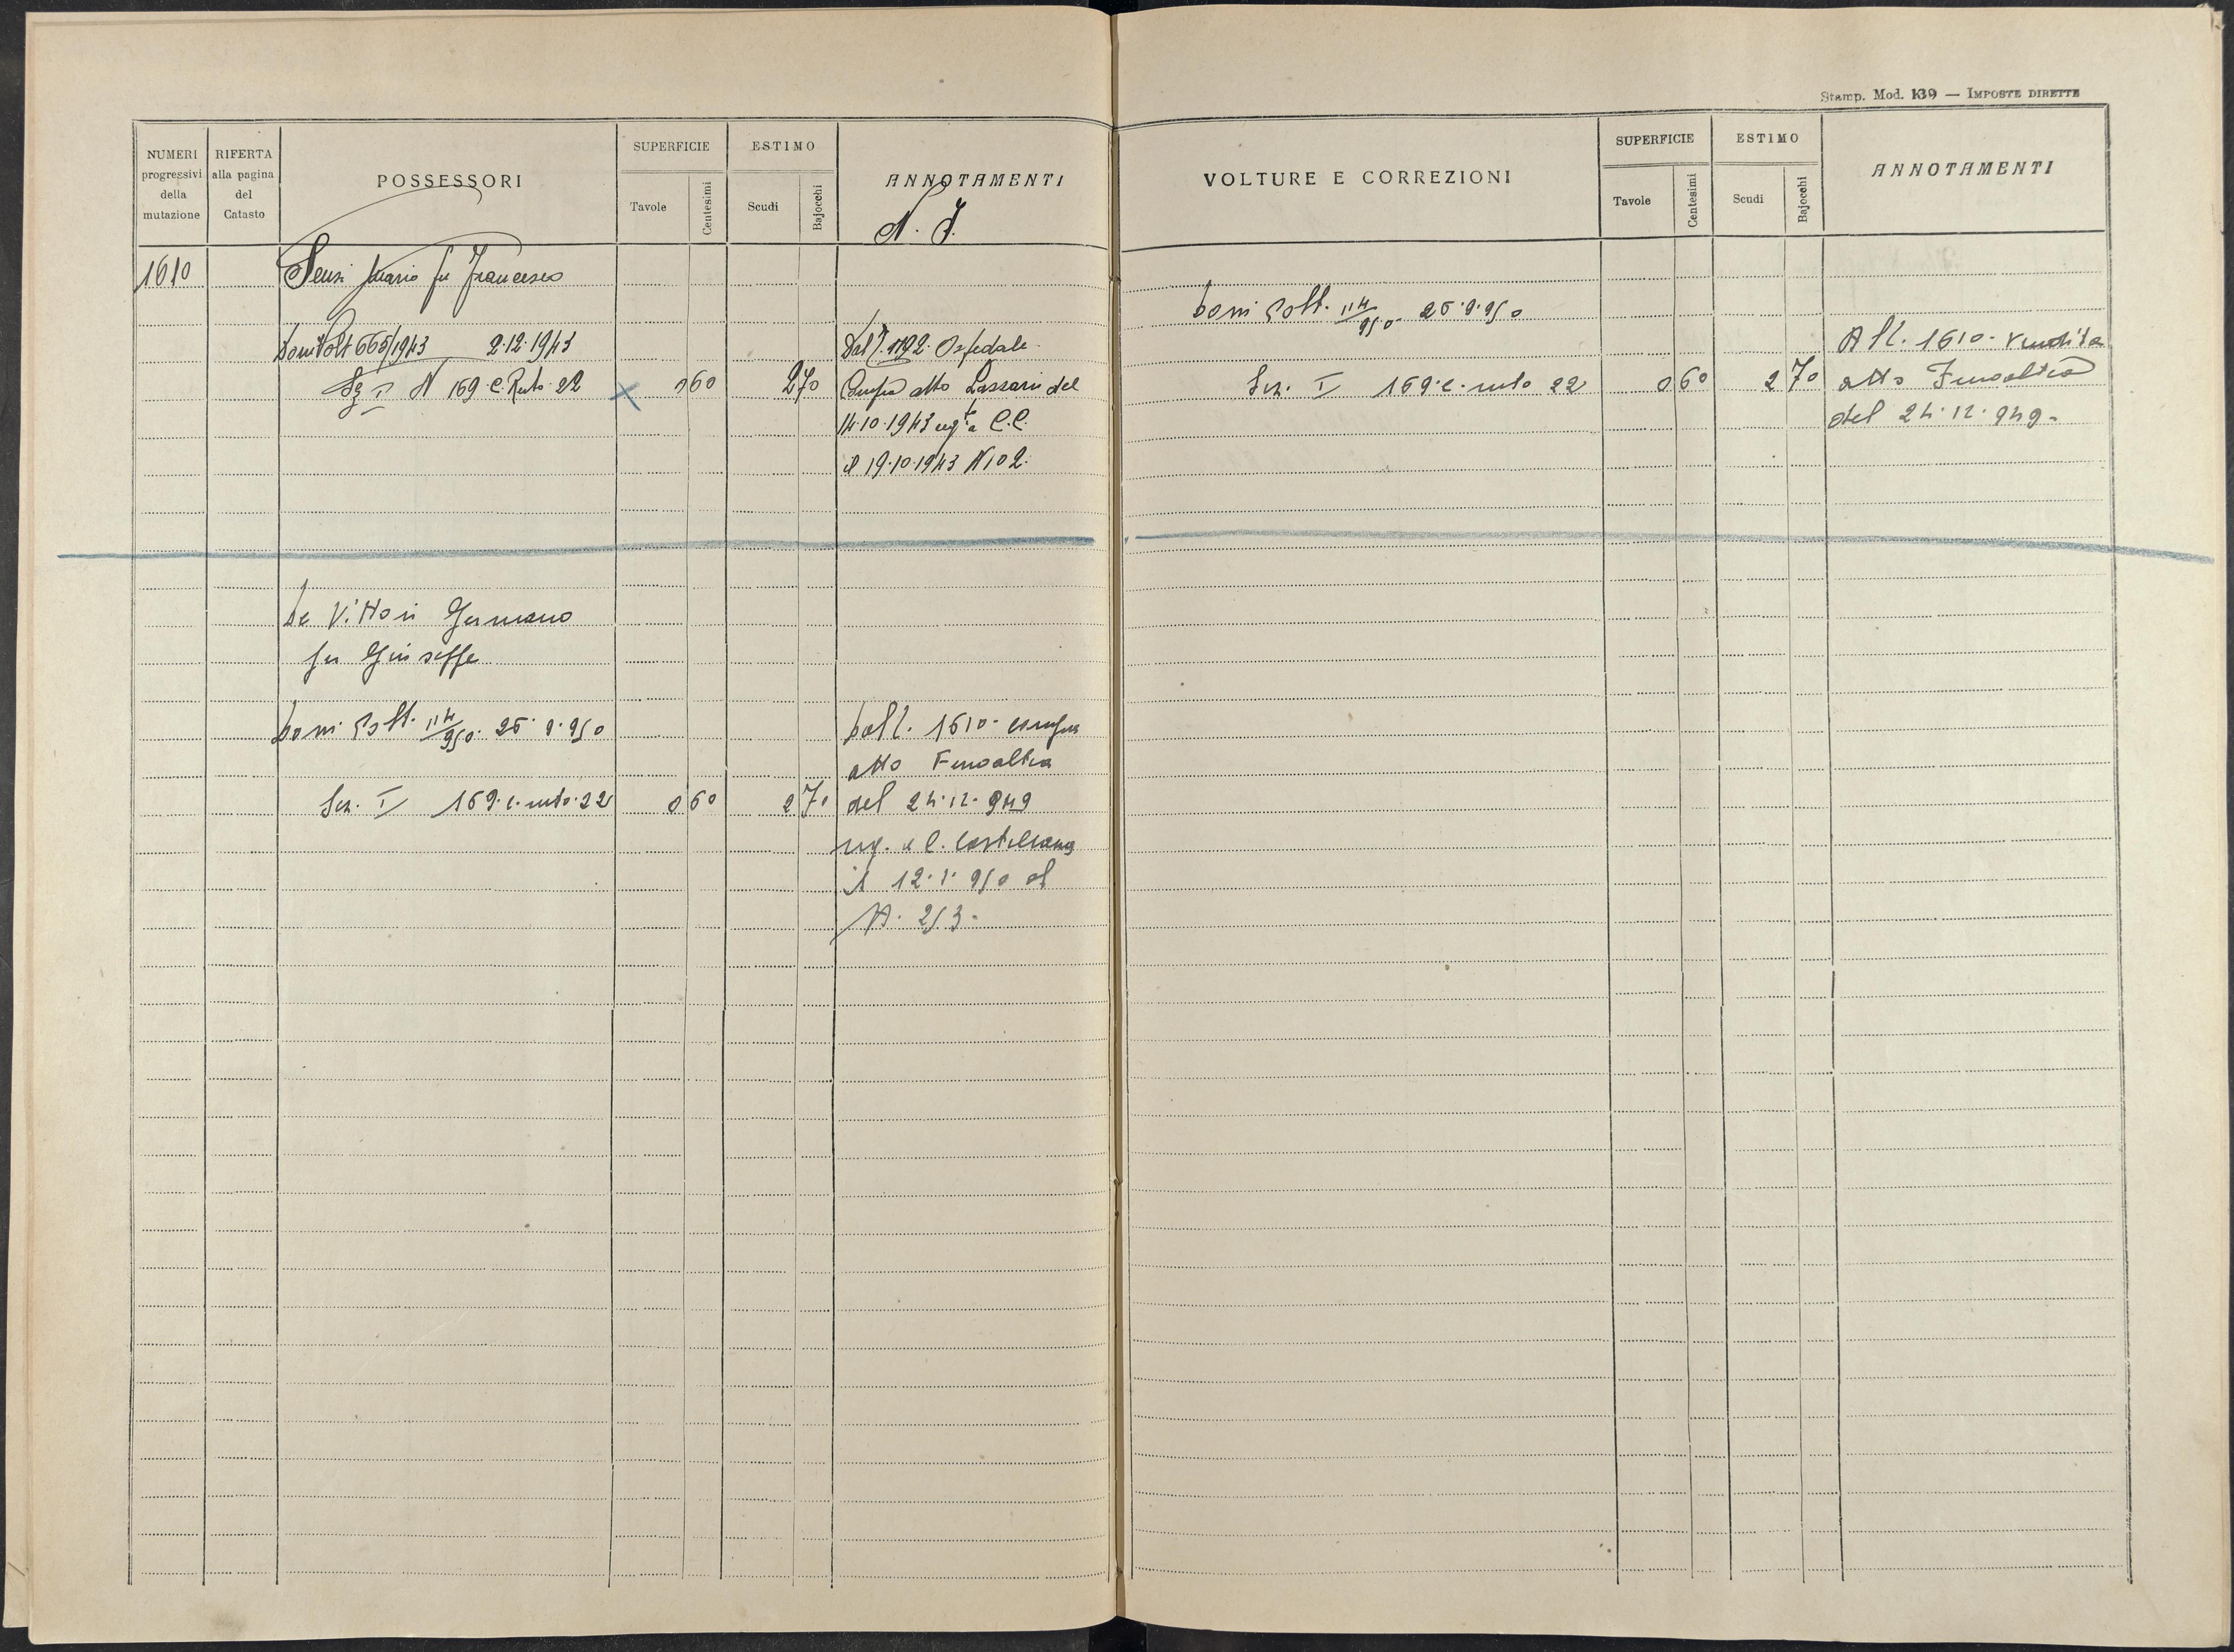 Stamp. Mod. 139 — IMPOSTE DIRETTE
NUMERI progressivi della mutazione
RIFERTA alla pagina del Catasto
POSSESSORI
SUPERFICIE
Tavole
Centesimi
ESTIMO
Scudi
Bajocchi
ANNOTAMENTI
N. I.
1610
Sensi Mario fu Francesco
Dom Volt 665/1943 2.12.1943
Dal P. 1192 Ospedale
Sez I N 169 C. Rusto 22
0 60
2 70
Compra atto Lazzari del
14.10.1943 reg.to a C.C.
il 19.10.1943 N 102.
De Vittori Germano
fu Giuseppe
Dom Volt. 114/950. 25.9.950
Dal P. 1610 - compra
atto Fenoaltea
Sez. I 169. c. rusto. 22
0 60
2 70
del 24.12.949
reg. a C. Castellana
il 12.1.950 al
N. 253.
VOLTURE E CORREZIONI
SUPERFICIE
Tavole
Centesimi
ESTIMO
Scudi
Bajocchi
ANNOTAMENTI
Dom Volt. 114/950. 25.9.950
Al P. 1610 - Vendita
Sez. I 169. c. rusto 22
0 60
2 70
atto Fenoaltea
del 24.12.949.